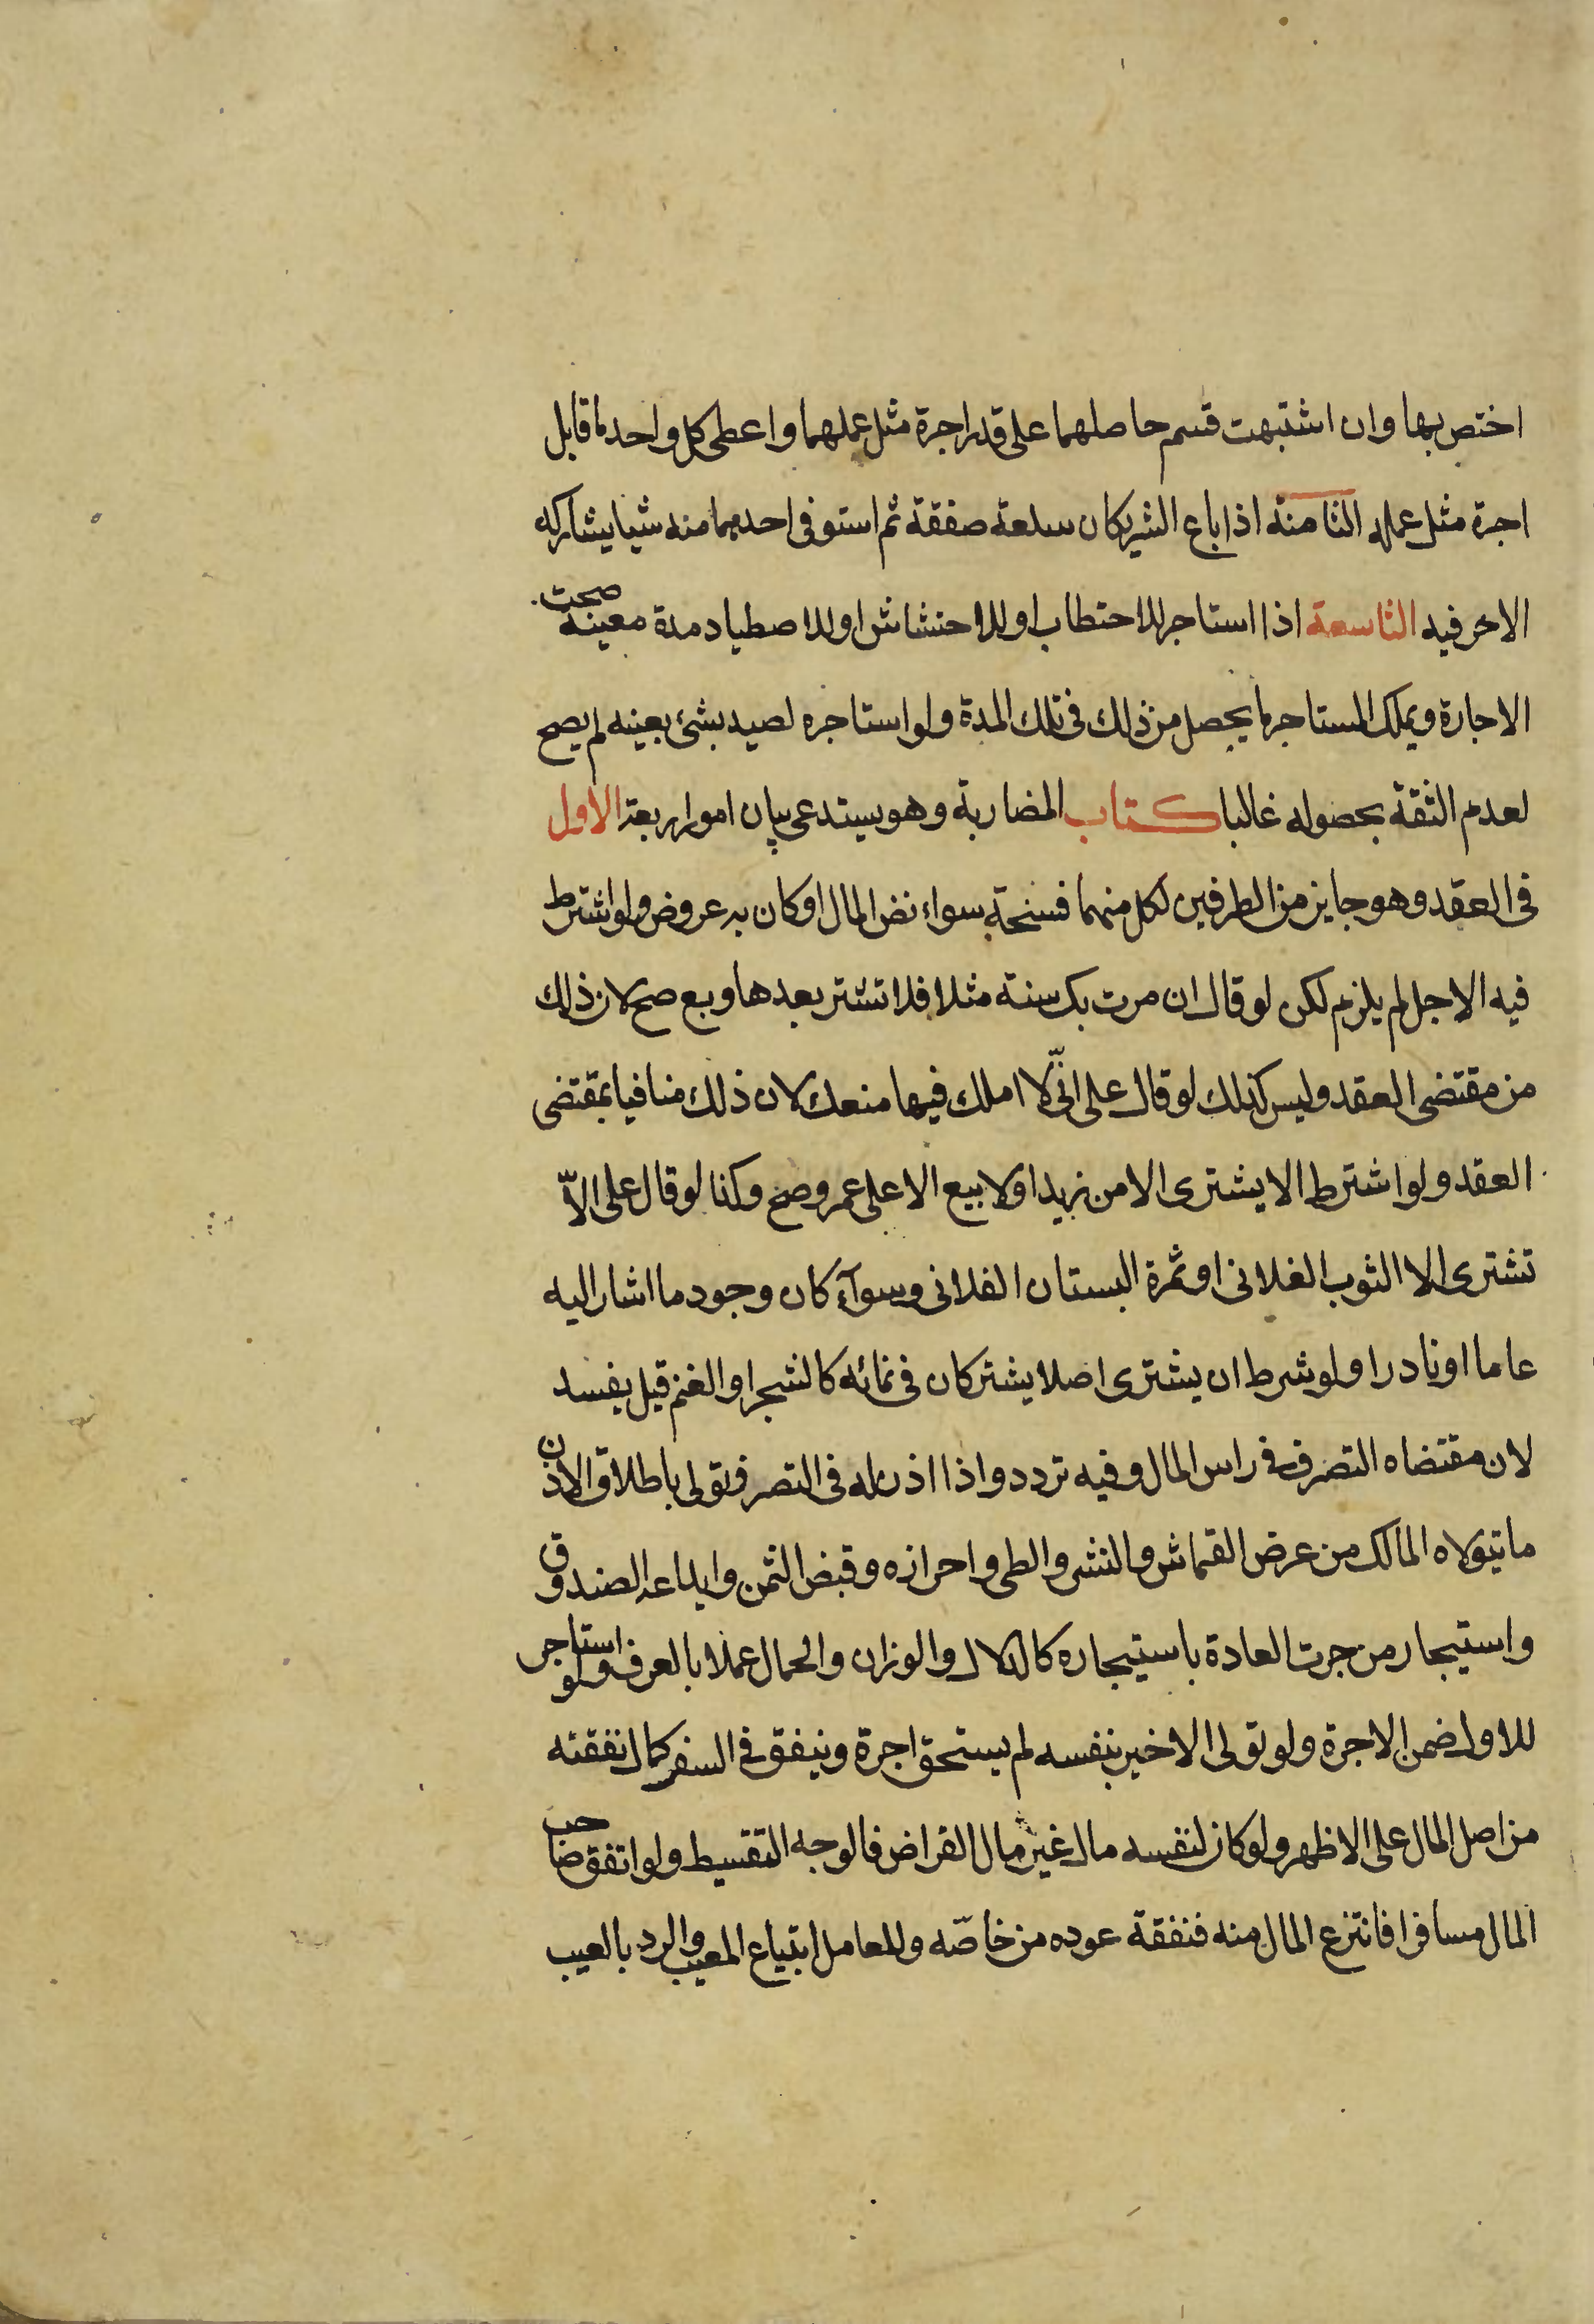 اختص بها وان اشتبهت قسم حاصلهما على قدر اجرة مثل عملهما واعطى كل واحد ما قابل
اجرة مثل عمله الثامنة اذا باع الشريكان سلعة صفقة ثم استوفى احدهما منه شيا يشاركه
الاخر فيه التاسعة اذا استاجر للاحتطاب او للاحتشاش او للاصطياد مدة معينة صحت
الاجارة ويملك المستاجر ما يحصل من ذلك فى تلك المدة ولو استاجره لصيد بشئ بعينه لم يصح
لعدم الثقة بحصوله غالبا كتاب المضاربة وهو يستدعى بيان امور اربعة الاول
فى العقد وهو جايز من الطرفين لكل منهما فسخه سواء نض المال او كان به عروض ولو اشترط
فيه الاجل لم يلزم لكن لو قال ان مرت بك سنة مثلا فلا تشتر بعدها وبع صح لان ذلك
من مقتضى العقد وليس كذلك لو قال على انّى لا املك فيها منعك لان ذلك منافيا بمقتضى
العقد ولو اشترط الا يشترى الا من زيد او لا يبيع الا على عمرو صح وكذا لو قال على الاّ
تشترى الا الثوب الفلانى او ثمرة البستان الفلانى وسوآء كان وجود ما اشار اليه
عاما او نادرا ولو شرط ان يشترى اصلا يشتركان فى نمائه كالشجر او الغنم قيل يفسد
لان مقتضاه التصرف فى راس المال وفيه تردد واذا اذن له فى التصرف تولى باطلاق الاذن
ما يتولاه المالك من عرض القماش والنشر والطى واحرازه وقبض الثمن وايداعه الصندوق
واستيجار من جرت العادة باستيجاره كالدلال والوزان والحمال عملا بالعرف ولو استاجر
للاول ضمن الاجرة ولو تولى الاخير بنفسه لم يستحق اجرة وينفق فى السفر كمال نفقته
من اصل المال على الاظهر ولو كان لنفسه مال غير مال القراض فالوجه التقسيط ولو اتفق صاحب
المال مسافرا فانتزع المال منه فنفقة عوده من خاصّه وللعامل ابتياع المعيب والرد بالعيب